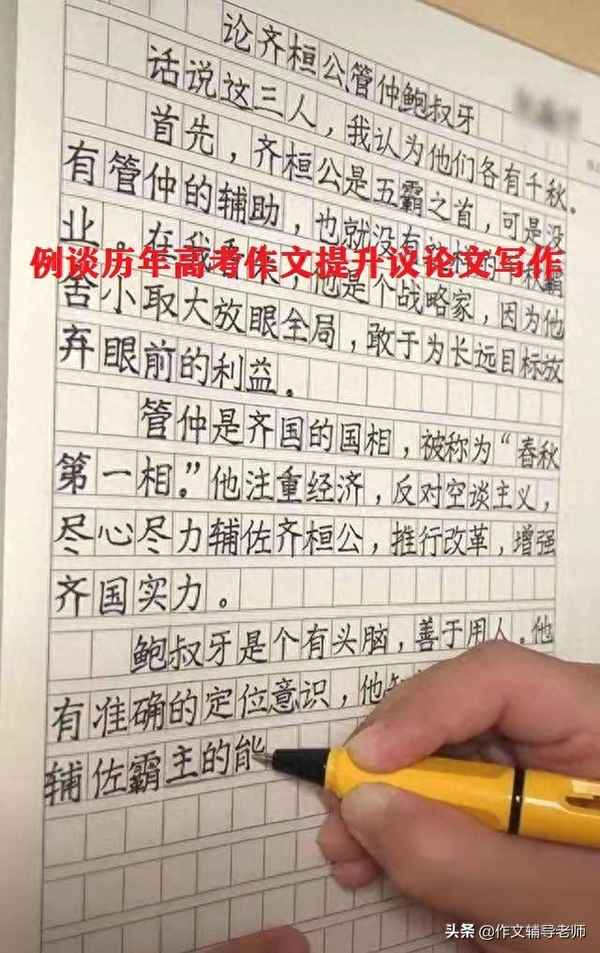 论齐桓公管仲鲍叔牙
话说这三人，我认为他们各有千秋。
首先，齐桓公是五霸之首，可是没
有管仲的辅助，也就没有
业。在我看来，他是个战略家，因为他
例谈历年高考作文提升议论文写作
舍小取大放眼全局，敢于为长远目标放
弃眼前的利益。
管仲是齐国的国相，被称为“春秋
第一相。”他注重经济，反对空谈主义，
尽心尽力辅佐齐桓公，推行改革，增强
齐国实力。
鲍叔牙是个有头脑，善于用人。他
有准确的定位意识，他
辅佐霸主的能
头条 @作文辅导老师